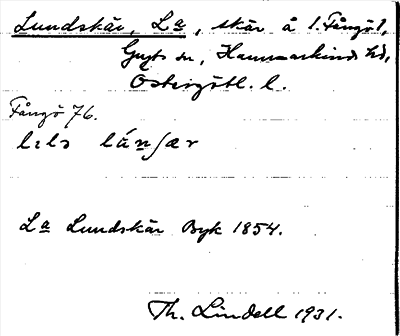 Lundskär, La, skär å l. Fångö 1,
Gryts sn, Hammarkinds hd,
Östergötl. l.
Fångö 76.
La Lundskär Byk 1854.
Th. Lindell 1931.